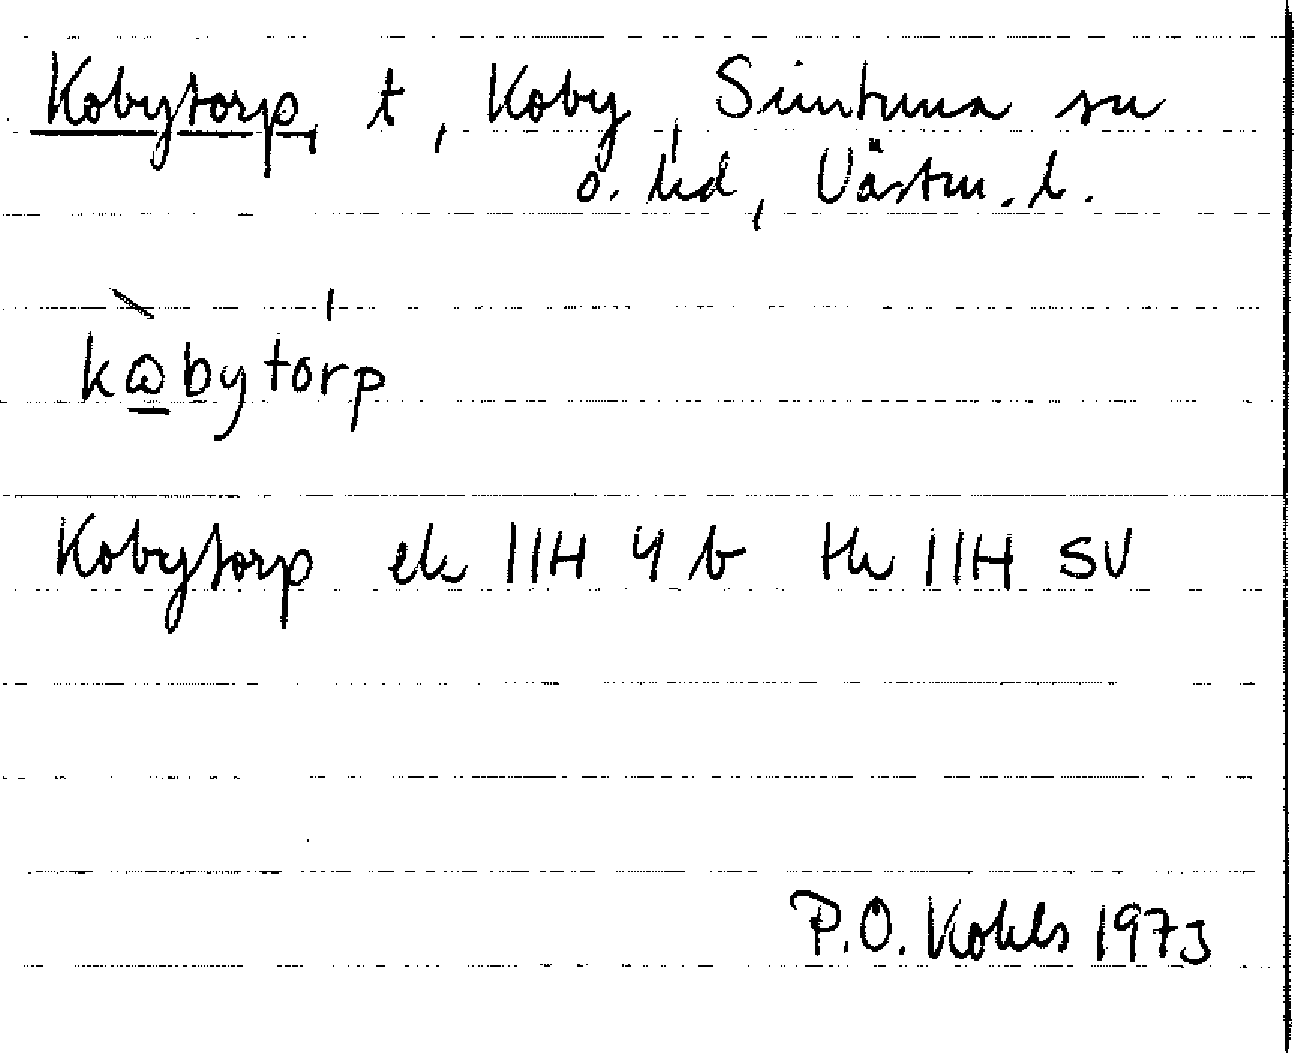 Kobytorp, t, Koby, Simtuna sn
o. hd, Västm. l.
kɷbytorp
Kobytorp ek 11H 4 b tk 11H SV
P.O. Kohls 1973